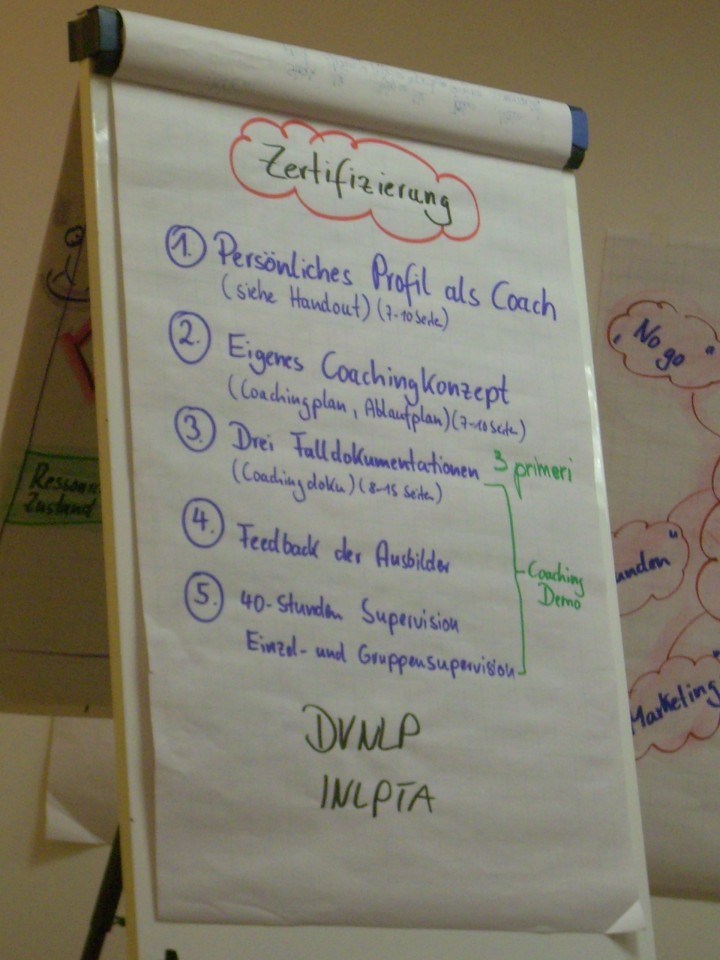 Zertifizierung
1. Persönliches Profil als Coach
(siehe Handout) (7-10 Seiten)
2. Eigenes Coachingkonzept
(Coachingplan, Ablaufplan) (7-10 Seiten)
3. Drei Falldokumentationen
3 primeri
(Coachingdoku) (8-15 Seiten)
4. Feedback der Ausbilder
Coaching
Demo
5. 40-Stunden Supervision
Einzel- und Gruppensupervision
DVNLP
INLPTA
Zustand
"No go"
unden"
Marketing"